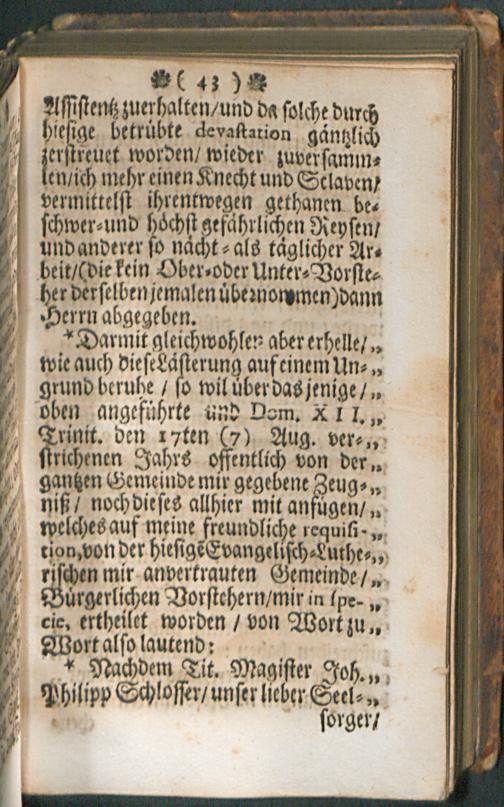 ❋( 43 )❋
Assistentz zuerhalten/und da solche durch
hiesige betrübte devastation gäntzlich
zerstreuet worden/ wieder zuversamm⸗
len/ich mehr einen Knecht und Sclaven/
vermittelst ihrentwegen gethanen be⸗
schwer⸗und höchst gefährlichen Reysen/
und anderer so nächt⸗als täglicher Ar⸗
beit/(die kein Ober⸗oder Unter⸗Vorste⸗
her derselben jemalen übernommen)dann
Herrn abgegeben.
*Darmit gleichwohlen aber erhelle/„
wie auch diese Lästerung auf einem Un⸗„
grund beruhe / so wil über das jenige/„
oben angeführte und Dom. XII.„
Trinit. den 17ten (7) Aug. ver⸗„
strichenen Jahrs offentlich von der„
gantzen Gemeinde mir gegebene Zeug⸗„
niß/ noch dieses allhier mit anfügen/„
welches auf meine freundliche requisi-„
tion,von der hiesigē Evangelisch⸗Luthe⸗„
rischen mir anvertrauten Gemeinde/„
Bürgerlichen Vorstehern/mir in spe-„
cie, ertheilet worden / von Wort zu„
Wort also lautend:
* Nachdem Tit. Magister Joh.„
Philipp Schlosser/ unser lieber Seel⸗„
sorger/